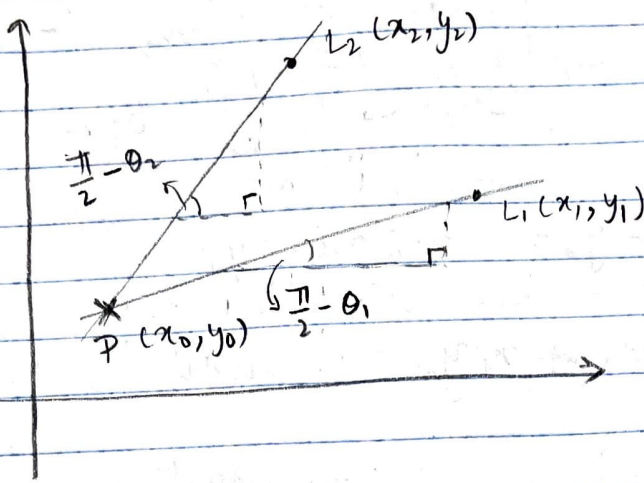 L₂ (x₂, y₂)
π/2 - θ₂
L₁ (x₁, y₁)
π/2 - θ₁
P (x₀, y₀)